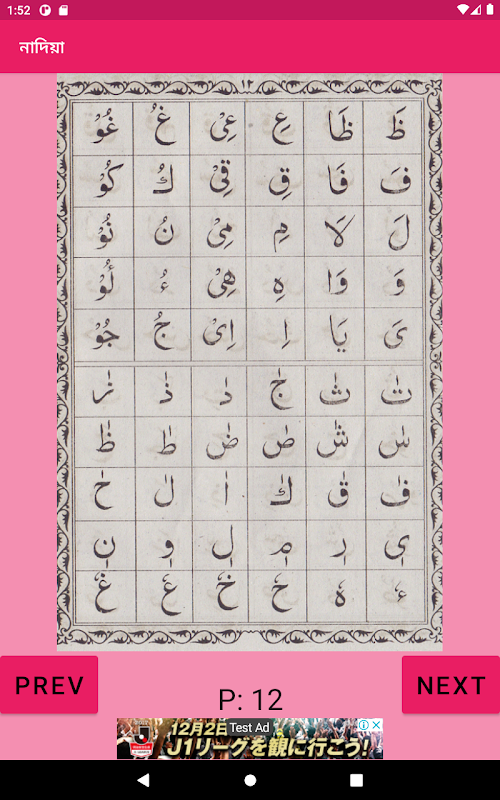 1:52
নাদিয়া
١٢
ظَ ظَا عِ عِىْ غُ غُوْ
فَ فَا قِ قِىْ كُ كُوْ
لَ لَا مِ مِىْ نُ نُوْ
وَ وَا هِ هِىْ ءُ أُوْ
ىَ يَا اِ اِىْ جُ جُوْ
تٰ ثٰ جٰ دٰ ذٰ زٰ
سٰ شٰ صٰ ضٰ طٰ ظٰ
فٰ قٰ كٰ اٰ لٰ حٰ
ىٖ رٖ مٖ لٖ وٖ نٖ
ءٗ هٗ حٗ خٗ عٗ غٗ
PREV
P: 12
NEXT
12月2日
Test Ad
J1リーグを観に行こう!